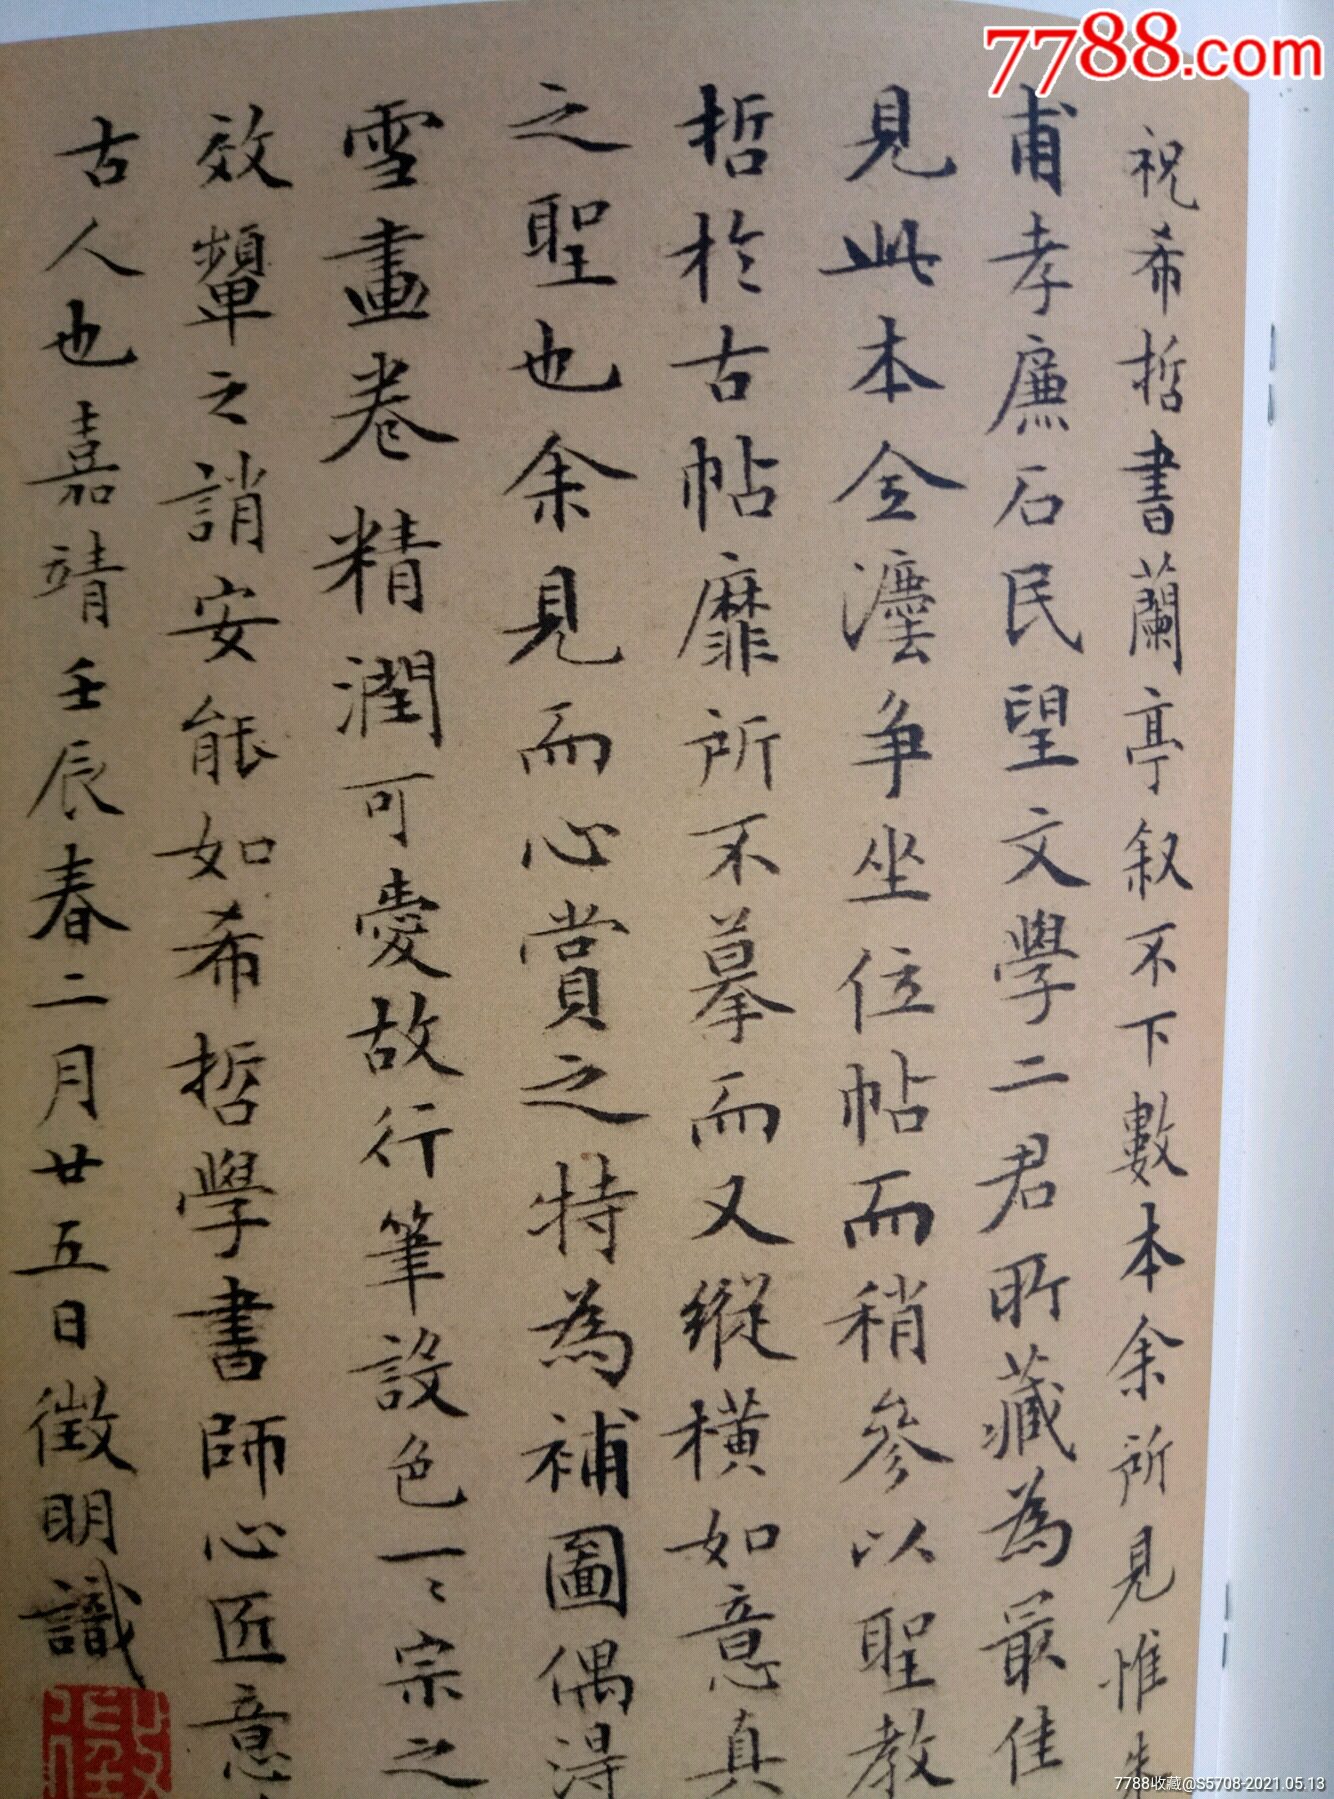 祝希哲書蘭亭叙不下數本余所見惟朱
甫孝廉石民望文學二君所藏為最佳
見此本全灋争坐位帖而稍參以聖教
哲於古帖靡所不摹而又縱橫如意真
之聖也余見而心賞之特為補圖偶得
雪畫卷精潤可愛故行筆設色一〻宗之
效顰之誚安能如希哲學書師心匠意
古人也嘉靖壬辰春二月廿五日徵明識
7788.com
7788收藏@S5708-2021.05.13